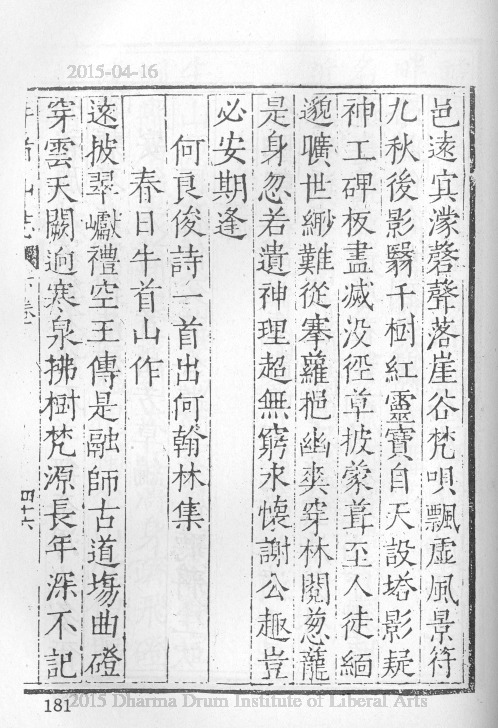 2015-04-16
邑遠㝠濛磬聲落崖谷梵唄飄虚風景符
九秋後影翳千樹紅靈寶自天設塔影疑
神工碑板盡滅没徑草披蒙茸至人徒緬
邈曠世緲難從搴蘿挹幽爽穿林閱葱蘢
是身忽若遺神理超無窮永懷謝公趣豈
必安期逢
何良俊詩一首出何翰林集
春日牛首山作
遠披翠巘禮空王傳是融師古道塲曲磴
穿雲天闕逈寒泉拂樹梵源長年深不記
牛首山志
四十六
181
2015 Dharma Drum Institute of Liberal Arts